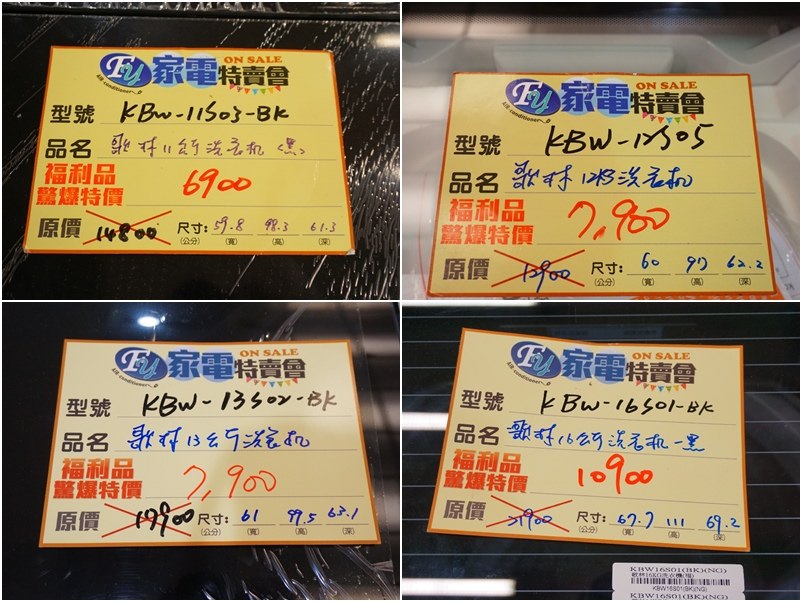 FU 家電特賣會 ON SALE
Air conditioner
型號 KBW-11S03-BK
品名 歌林11公斤洗衣机(黑)
福利品
驚爆特價 6900
原價 14800 尺寸: 59.8 98.3 61.3
(公分) (寬) (高) (深)
FU 家電特賣會 ON SALE
Air conditioner
型號 KBW-12S05
品名 歌林12KG洗衣机
福利品
驚爆特價 7,900
原價 12900 尺寸: 60 97 62.2
(公分) (寬) (高) (深)
FU 家電特賣會 ON SALE
Air conditioner
型號 KBW-13S02-BK
品名 歌林13公斤洗衣机
福利品
驚爆特價 7,900
原價 17900 尺寸: 61 99.5 63.1
(公分) (寬) (高) (深)
FU 家電特賣會 ON SALE
Air conditioner
型號 KBW-16S01-BK
品名 歌林16公斤洗衣机-黑
福利品
驚爆特價 10900
原價 21900 尺寸: 67.7 111 69.2
(公分) (寬) (高) (深)
KBW16S01(BK)(NG)
歌林16KG洗衣機(福)
KBW16S01(BK)(NG)
KBW16S01(BK)(NG)